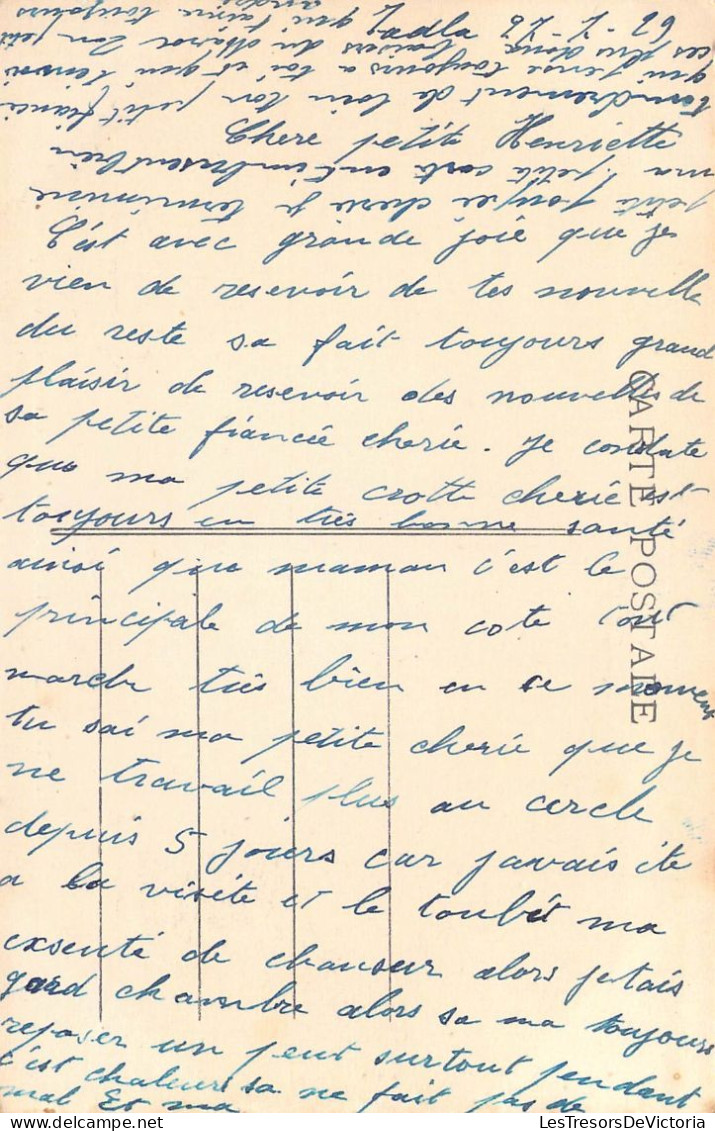 Chere petite Henriette
C'est avec grande joie que je
vien de resevoir de tes nouvelle
du reste sa fait toujours grand
plaisir de resevoir des nouvelles de
sa petite fiancée cherie. je constate
que ma petite crotte cherie est
toujours en très bonne santé
ainsi que maman c'est le
principale de mon cote tout
marche très bien en ce moment
tu sai ma petite cherie que je
ne travail plus au cercle
depuis 5 jours car javais ete
a la visite et le toubit ma
exsenté de chanseur alors jetais
gard chambre alors sa ma toujours
reposer un peut surtout pendant
c'est chaleurs sa ne fait pas de
mal Et ma
petite poupee cherie je termine
ma petite carte en t'embrassent bien
tendrement de loin ton petit fiancé
qui pense toujours a toi et qui t'envoi
ces plus doux baisers du Maroc ton petit
qui t'aime toujours
André
CARTE POSTALE
LesTresorsDeVictoria